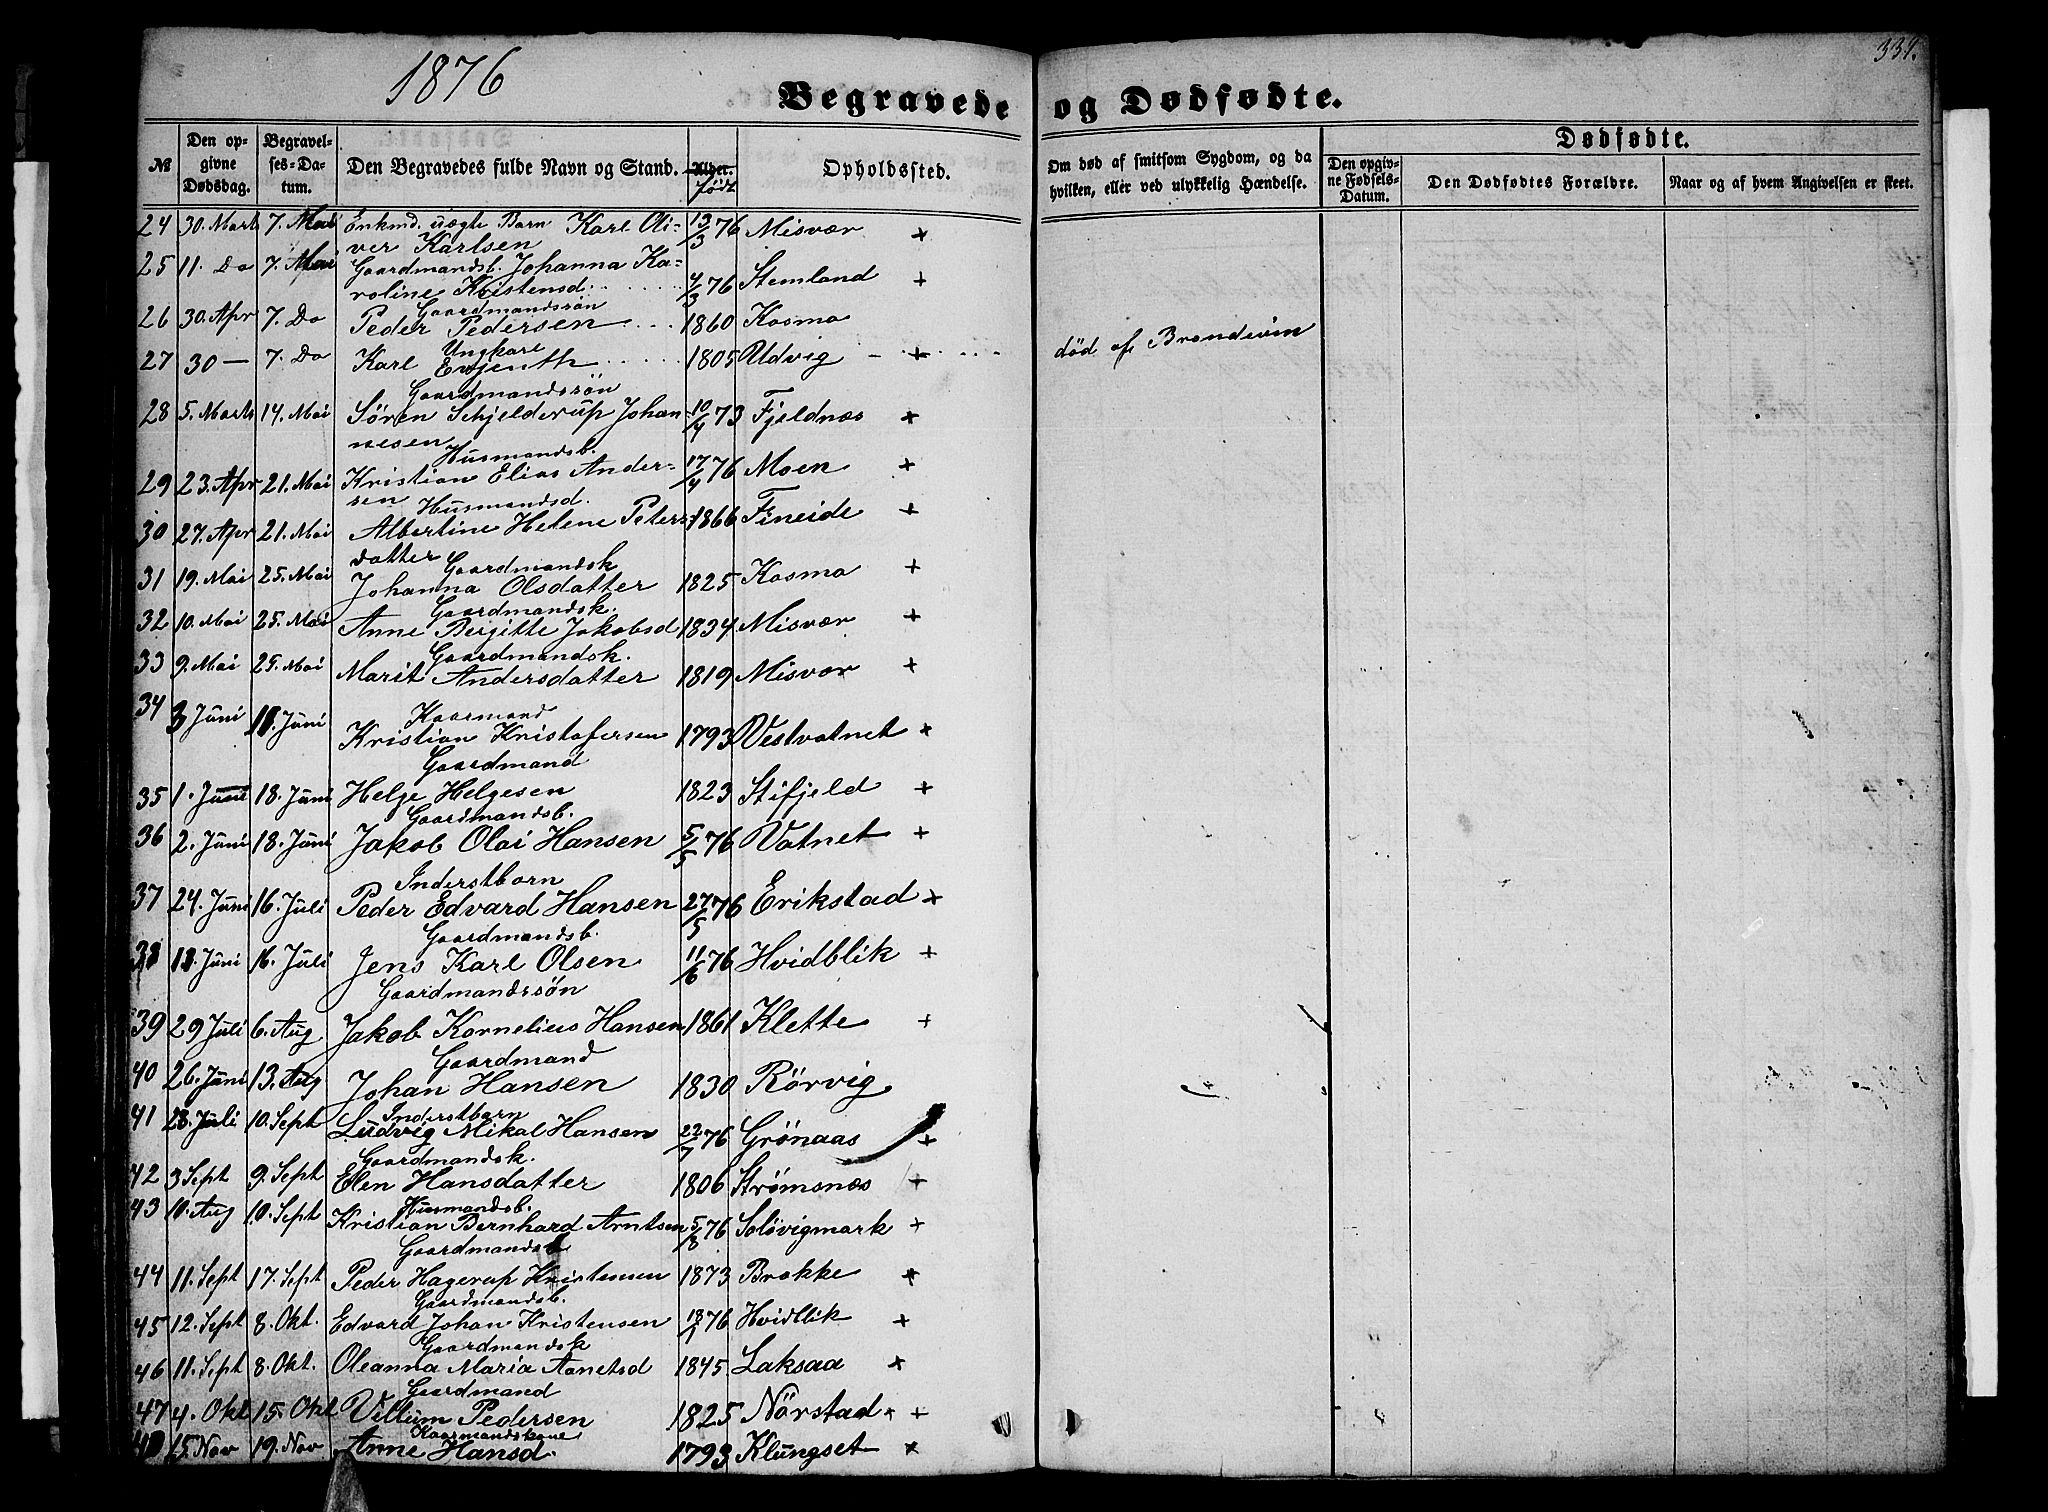 1876
Begravede og Dødfødte.
339.
Dødfødte.
№
Den op-
givne
Dødsdag.
Begravel-
ses-Da-
tum.
Den Begravedes fulde Navn og Stand.
Alder.
født
Opholdssted.
Om død af smitsom Sygdom, og da
hvilken, eller ved ulykkelig Hændelse.
Den opgiv-
ne Fødsels-
Datum.
Den Dødfødtes Forældre.
Naar og af hvem Angivelsen er skeet.
24 30. Marts 7. Mai Enkmd. uægte Barn Karl Oli- 13/3 76 Misvær +
ver Karlsen
25 11. Do 7. Mai Gaardmandsb. Johanna Ka-
roline Kristensd. 4/3 76 Stemland +
Gaardmandssøn
26 30. Apr 7. Do Peder Pedersen 1860 Kosmo
Ungkarl
27 30 — 7. Do Karl Evjenth 1805 Udvig - + død af Brændevin
Gaardmandssøn
28 5. Marts 14. Mai Søren Schjelderup Johan- 10/4 73 Fjeldnæs +
nesen
Husmandsb.
29 23. Apr 21. Mai Kristian Elias Ander- 17/4 76 Moen +
sen
Husmandsd.
30 27. Apr 21. Mai Albertine Helene Peters- 1866 Fineide +
datter
Gaardmandsk
31 19. Mai 25. Mai Johanna Olsdatter 1825 Kosmo +
Gaardmandsk.
32 10. Mai 25. Mai Anne Bergitte Jakobsd 1834 Misvær +
Gaardmandsk.
33 9. Mai 25. Mai Marit Andersdatter 1819 Misvær +
Kaarmand
34 3 Juni 11. Juni Kristian Kristofersen 1793 Vestvatnet +
Gaardmand
35 1. Juni 18. Juni Helge Helgesen 1823 Stifjeld +
Gaardmandsb.
36 2. Juni 18. Juni Jakob Olai Hansen 5/5 76 Vatnet +
Inderstbarn
37 24. Juni 16. Juli Peder Edvard Hansen 27/5 76 Erikstad +
Gaardmandsb.
38 18. Juni 16. Juli Jens Karl Olsen 11/6 76 Hvidblik +
Gaardmandssøn
39 29 Juli 6. Aug Jakob Kornelius Hansen 1861 Klette +
Gaardmand
40 26. Juni 13. Aug Johan Hansen 1830 Rörvig
Inderstbarn
41 23. Juli 10. Sept Ludvig Mikal Hansen 22/7 76 Grönaas +
Gaardmandsk.
42 3 Sept 9. Sept Elen Hansdatter 1806 Strømsnæs +
Husmandsb.
43 11. Aug 10. Sept Kristian Bernhard Arntsen 5/8 76 Solövigmark +
Gaardmandsb
44 11. Sept 17. Sept Peder Hagerup Kristensen 1873 Brække +
Gaardmandsb.
45 12. Sept 8. Okt. Edvard Johan Kristensen 18/1 76 Hvidblik +
Gaardmandsk
46 11. Sept 8. Okt. Oleanna Maria Aanetsd 1845 Laksaa +
Gaardmand
47 4. Okt 15. Okt Villum Pedersen 1825 Nörstad +
Kaarmandskone
48 15. Nov 19. Nov Anne Hansd. 1793 Klungset +